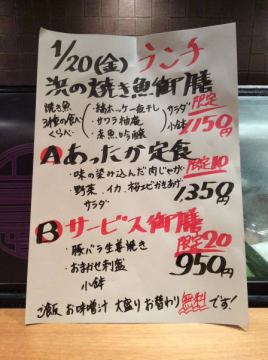 1/20(金) ランチ
浜の焼き魚御膳
焼き魚 ・縞ホッケ一夜干し サラダ 限定
3種の食べ ・サワラ柚庵 小鉢
くらべ ・赤魚吟醸 1150円
Ⓐあったか定食
・味の染み込んだ肉じゃが 限定10
・野菜、イカ、桜エビかきあげ 1,350円
サラダ
Ⓑサービス御膳
・豚バラ生姜焼き 限定20
・おまかせ刺盛 950円
小鉢
ご飯 お味噌汁 大盛り お替わり 無料です!